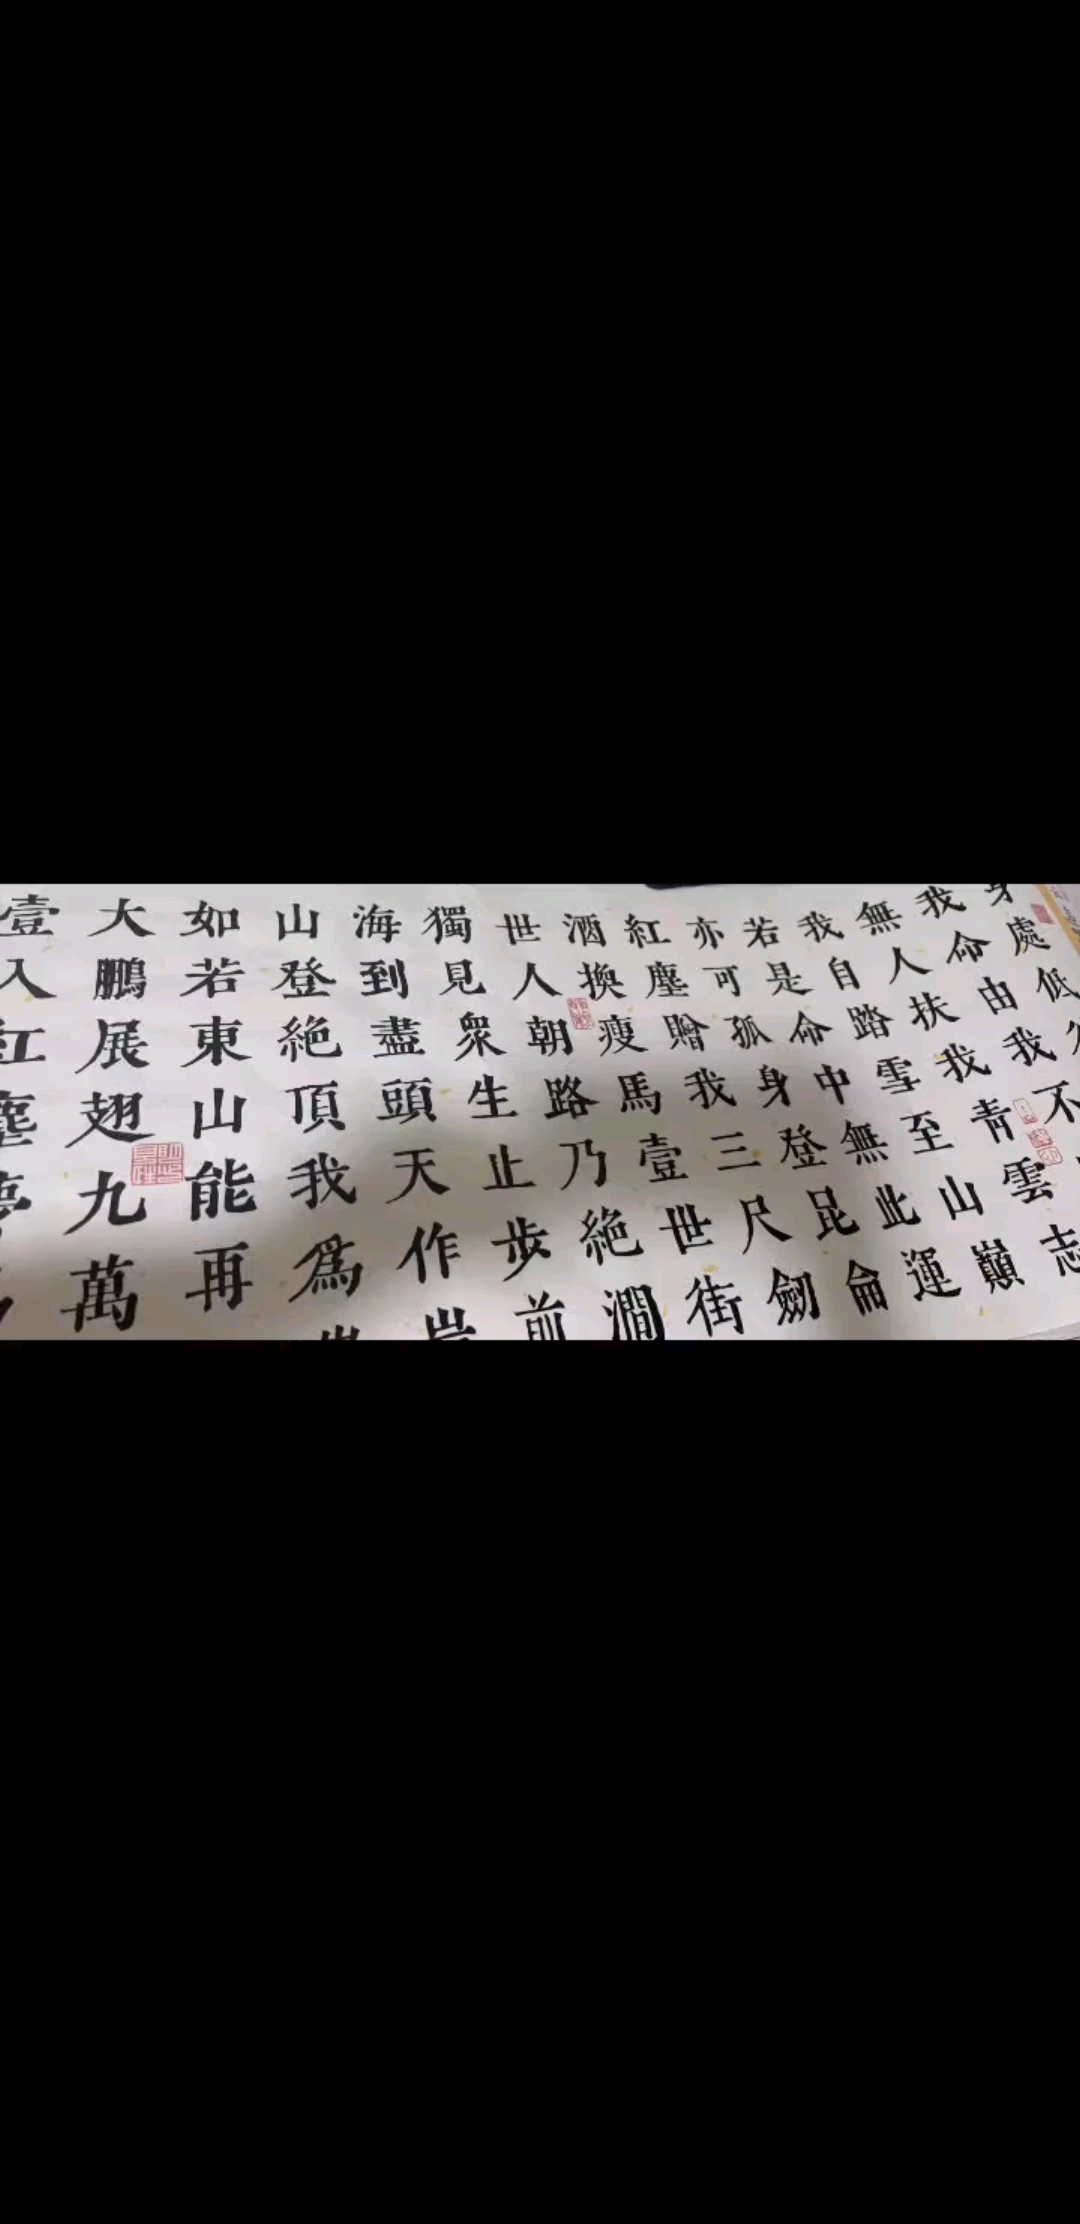 身處低
我命由我不
無人扶我青雲志
我自踏雪至山巔
若是命中無此運
亦可孤身登昆侖
紅塵贈我三尺劍
酒換瘦馬壹世街
世人朝路乃絕澗
獨見眾生止步前
海到盡頭天作岸
山登絕頂我爲
如若東山能再
大鵬展翅九萬
壹入紅塵